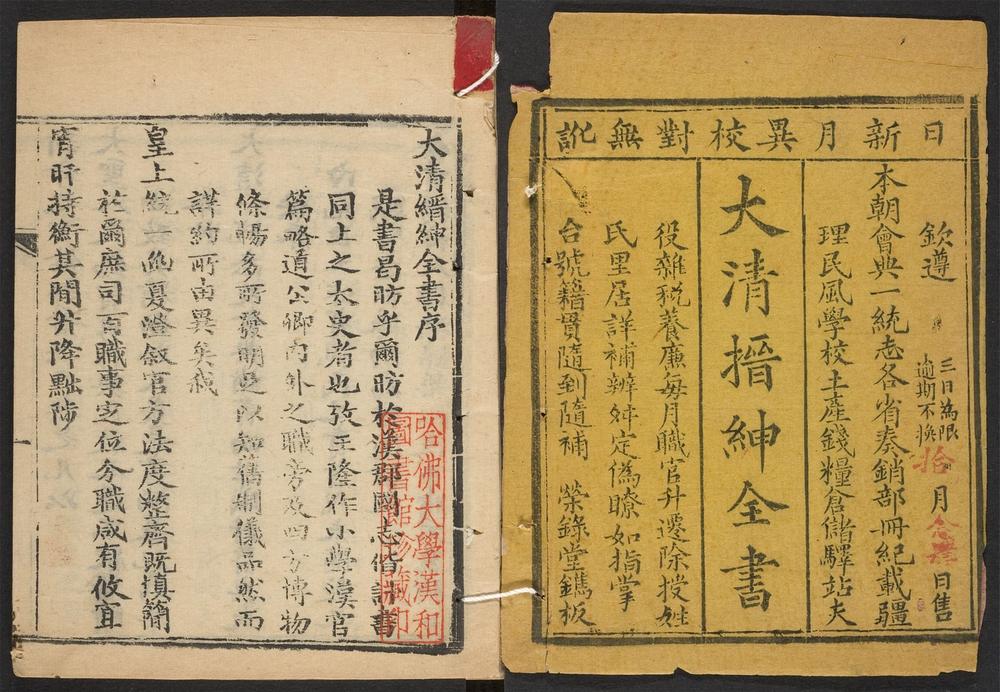 日新月異校對無訛
欽遵
三日為限
逾期不換
拾月念 日售
本朝會典一統志各省奏銷部冊紀載疆
理民風學校土產錢糧倉儲驛站夫
大清搢紳全書
役雜稅養廉每月職官升遷除授姓
氏里居詳補辨舛定偽瞭如指掌
台號籍貫隨到隨補 榮錄堂鐫板
大清縉紳全書序
是書曷昉乎爾昉於漢郡國志偕計書
同上之太史者也攷王隆作小學漢官
篇略道公卿內外之職旁及四方博物
條暢多所發明足以知舊制儀品然而
詳約所由異矣我
皇上統一函夏澄敘官方法度整齊既填簡
於爾庶司百職事定位分職咸有攸宜
宵旰持衡其間升降黜陟
哈佛大學漢和
圖書館珍藏印